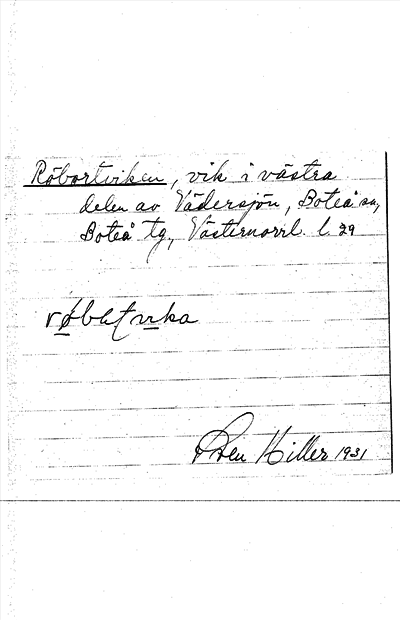 Röbortviken, vik i västra
delen av Vädersjön, Boteå sn,
Boteå tg, Västernorrl. l. 29
Hiller 1931